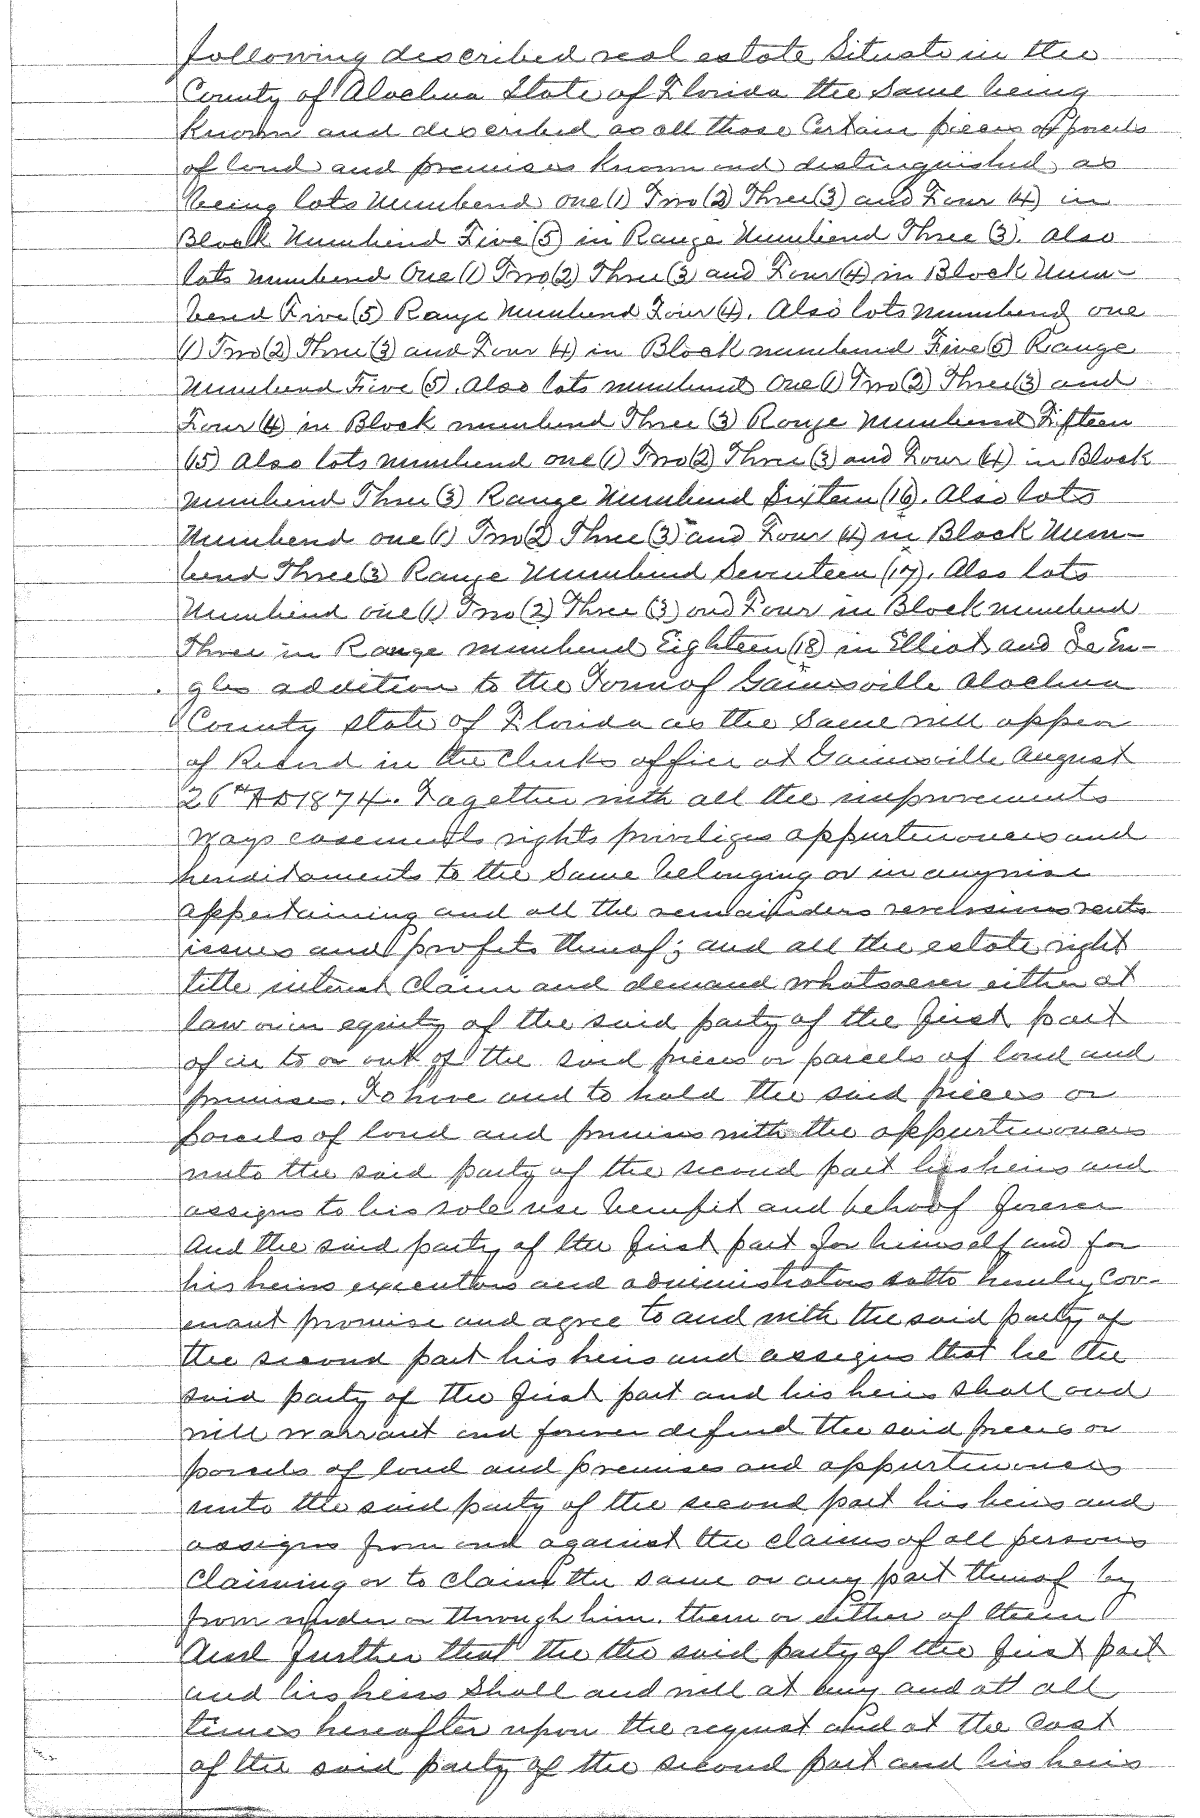 following described real estate Situate in the
County of Alachua State of Florida the Same being
Known and described as all those Certain pieces or parcels
of land and premises Known and distinguished as
being lots Numbered one (1) Two (2) Three (3) and Four (4) in
Block Numbered Five (5) in Range Numbered Three (3). Also
lots numbered One (1) Two (2) Three (3) and Four (4) in Block Num-
bered Five (5) Range Numbered Four (4). Also lots numbered one
(1) Two (2) Three (3) and Four (4) in Block numbered Five (5) Range
Numbered Five (5). Also lots numbered One (1) Two (2) Three (3) and
Four (4) in Block numbered Three (3) Range Numbered Fifteen
(15) Also lots numbered one (1) Two (2) Three (3) and Four (4) in Block
numbered Three (3) Range Numbered Sixteen (16). Also lots
Numbered one (1) Two (2) Three (3) and Four (4) in Block Num-
bered Three (3) Range Numbered Seventeen (17). Also lots
Numbered one (1) Two (2) Three (3) and Four in Block numbered
Three in Range numbered Eighteen (18) in Elliot and LeEn-
gles addition to the Town of Gainesville Alachua
County state of Florida as the Same will appear
of Record in the Clerks office at Gainesville August
26th AD 1874. Together with all the improvements
ways easements rights priviliges appurtenances and
hereditaments to the Same belonging or in anywise
appertaining and all the remainders reversions rents
issues and profits thereof; and all the estate right
title interest Claim and demand whatsoever either at
law or in equity of the said party of the first part
of in to or out of the said pieces or parcels of land and
premises. To have and to hold the said pieces or
parcels of land and premises with the appurtenances
unto the said party of the second part his heirs and
assigns to his sole use benefit and behoof forever
And the said party of the first part for himself and for
his heirs executors and administrators doth hereby Cov-
enant promise and agree to and with the said party of
the second part his heirs and assigns that he the
said party of the first part and his heirs shall and
will warrant and forever defend the said pieces or
parcels of land and premises and appurtenances
unto the said party of the second part his heirs and
assigns from and against the claims of all persons
Claiming or to claim the same or any part thereof by
from under or through him. them or either of them
And further that the the said party of the first part
and his heirs Shall and will at any and att all
times hereafter upon the request and at the Cost
of the said party of the second part and his heirs